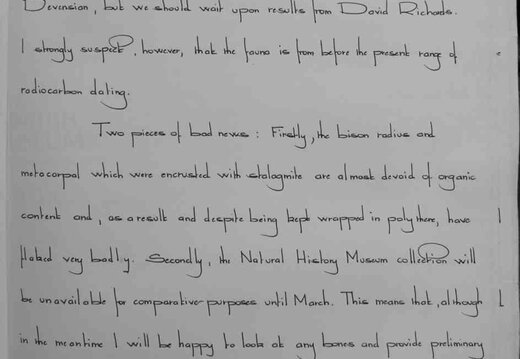 Devensian, but we should wait upon results from David Richards.
I strongly suspect, however, that the fauna is from before the present range of
radiocarbon dating.
Two pieces of bad news: Firstly, the bison radius and
metacarpal which were encrusted with stalagmite are almost devoid of organic
content and, as a result and despite being kept wrapped in polythene, have
flaked very badly. Secondly, the Natural History Museum collection will
be unavailable for comparative purposes until March. This means that, although I
in the meantime I will be happy to look at any bones and provide preliminary